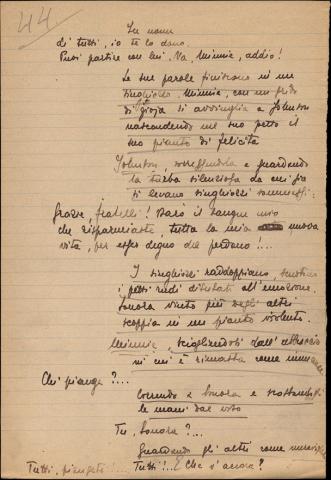 44.
In nome
di tutti, io te lo dono.
Puoi partire con lui. Va, Minnie, addio!
Le sue parole finiscono in un
singhiozzo. Minnie, con un grido
di gioja si avvinghia a Johnson
nascondendo nel suo petto il
suo pianto di felicità
Johnson, sorreggendola e guardando
la turba silenziosa da cui già
si levano singhiozzi sommessi:
Grazie, fratelli! Darò il sangue mio
che risparmiaste, tutta la mia nuova
vita, per esser degno del perdono!...
I singhiozzi raddoppiano,
i petti rudi dilatati all'emozione.
Sonora vinto più degli altri
scoppia in un pianto violento.
Minnie, sciogliendosi dall'abbraccio
in cui è rimasta come
Chi piange?...
Correndo a Sonora e
le mani dal viso
Tu, Sonora?...
Guardando gli altri come
Tutti, piangete!... Tutti!... E che s'ancora?